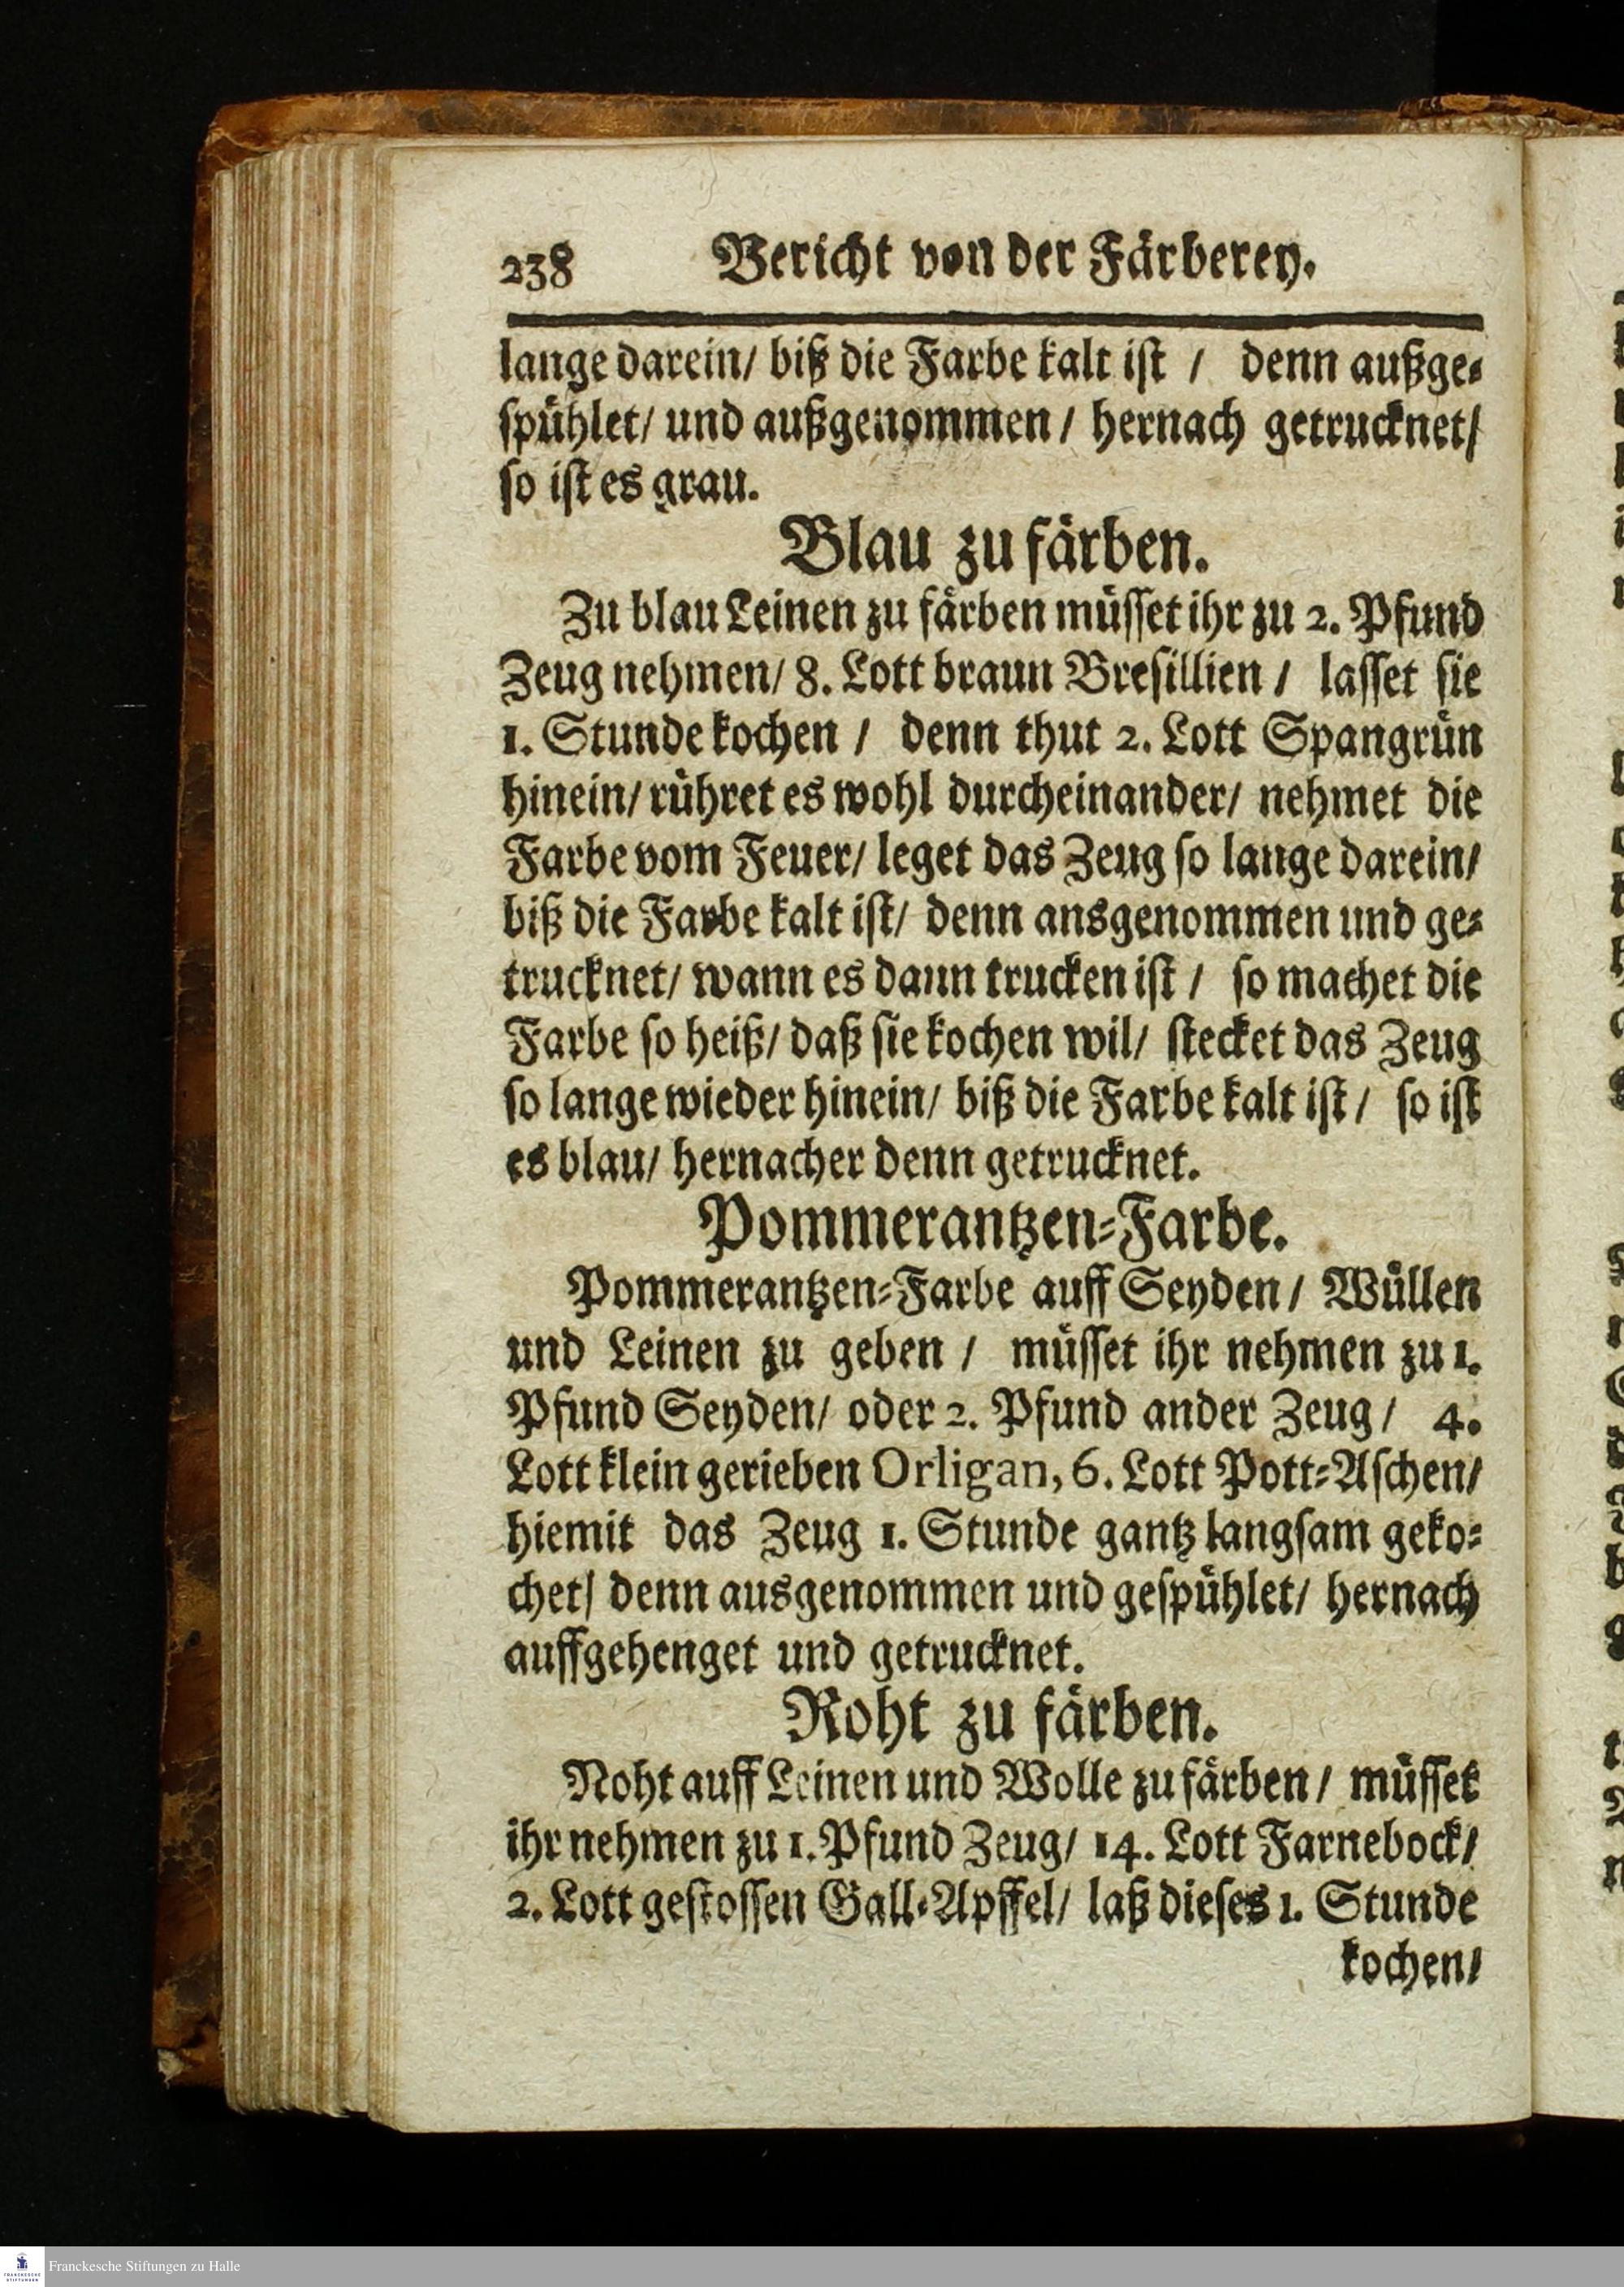 238 Bericht von der Färberey.
lange darein/ biß die Farbe kalt ist / denn außge-
spühlet/ und außgenommen/ hernach getrucknet/
so ist es grau.
Blau zu färben.
Zu blau Leinen zu färben müsset ihr zu 2. Pfund
Zeug nehmen/ 8. Lott braun Bresillien / lasset sie
1. Stunde kochen / denn thut 2. Lott Spangrün
hinein/ rühret es wohl durcheinander/ nehmet die
Farbe vom Feuer/ leget das Zeug so lange darein/
biß die Farbe kalt ist/ denn ansgenommen und ge-
trucknet/ wann es dann trucken ist / so machet die
Farbe so heiß/ daß sie kochen wil/ stecket das Zeug
so lange wieder hinein/ biß die Farbe kalt ist / so ist
es blau/ hernacher denn getrucknet.
Pommerantzen-Farbe.
Pommerantzen-Farbe auff Seyden / Wüllen
und Leinen zu geben / müsset ihr nehmen zu 1.
Pfund Seyden/ oder 2. Pfund ander Zeug / 4.
Lott klein gerieben Orligan, 6. Lott Pott-Aschen/
hiemit das Zeug 1. Stunde gantz langsam geko-
chet/ denn ausgenommen und gespühlet/ hernach
auffgehenget und getrucknet.
Roht zu färben.
Roht auff Leinen und Wolle zu färben / müsset
ihr nehmen zu 1. Pfund Zeug/ 14. Lott Farnebock/
2. Lott gestossen Gall-Apffel/ laß dieses 1. Stunde
kochen/
Franckesche Stiftungen zu Halle